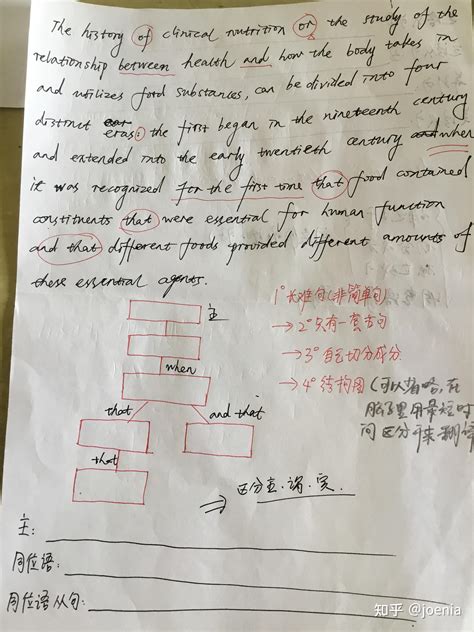 The history of clinical nutrition or the study of the
relationship between health and how the body takes in
and utilizes food substances, can be divided into four
distinct eras: the first began in the nineteenth century
and extended into the early twentieth century when
it was recognized for the first time that food contained
constituents that were essential for human function
and that different foods provided different amounts of
these essential agents.
主
when
that
and that
that
1° 长难句(非简单句
→2° 只有一套主句
→3° 自己切分成分
→4° 结构图 (可以省略, 在
脑子里用最短时
间区分开来翻译
⇒ 区分主.谓.宾.
主:
同位语:
同位语从句:
知乎 @joenia